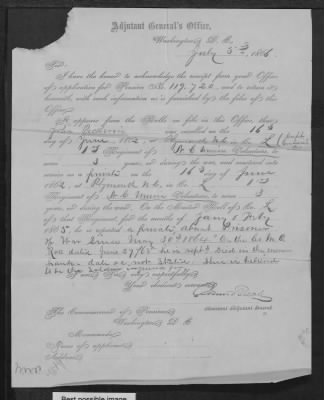 Adjutant General's Office,
Washington, D. C.,
July 5th, 1866
Sir:
I have the honor to acknowledge the receipt from your Office
of application for Pension No. 119.722, and to return it
herewith, with such information as is furnished by the files of this
Office.
It appears from the Rolls on file in this Office, that
was enrolled on the 16th
day of June, 1862, at Plymouth N.C. in the L
1st Regiment of N C Union Volunteers, to
serve 3 years, or during the war, and mustered into
service as a private on the 16th day of June
1862, at Plymouth N.C., in Co. L 1st
Regiment of N. C Union Volunteers, to serve 3
years, or during the war. On the Muster Roll of Co. L
of that Regiment, for the months of Jany & Feby
1865, he is reported a private, absent Prisoner
of War since May 30th 1864. On the Co. M. O.
Roll dated June 27/65 he is reptd Died in the
date &c. not stated.
I am, Sir, very respectfully,
Your obedient servant,
Assistant Adjutant General.
The Commissioner of Pensions,
Washington, D. C.
Memoranda:
Name of applicant,
Address,
Best possible image